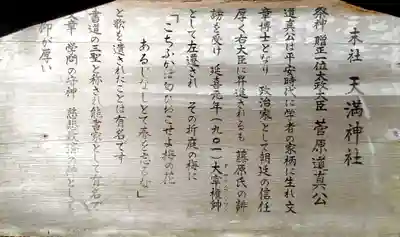 末社 天満神社
祭神 贈正一位太政大臣 菅原道真公
道真公は平安時代に学者の家柄に生れ文
章博士となり 政治家として朝廷の信任
厚く右大臣に昇進されるも 藤原氏の讒
謗を受け 延喜元年(九〇一)大宰権帥
として左遷され その折庭の梅に
「こちふかば匂ひおこせよ梅の花
あるじなしとて春をわするな」
と歌も遺されたことは有名です
書道の三聖と称され能書家として有名で
文章 学問の祖神 として
仰が厚い